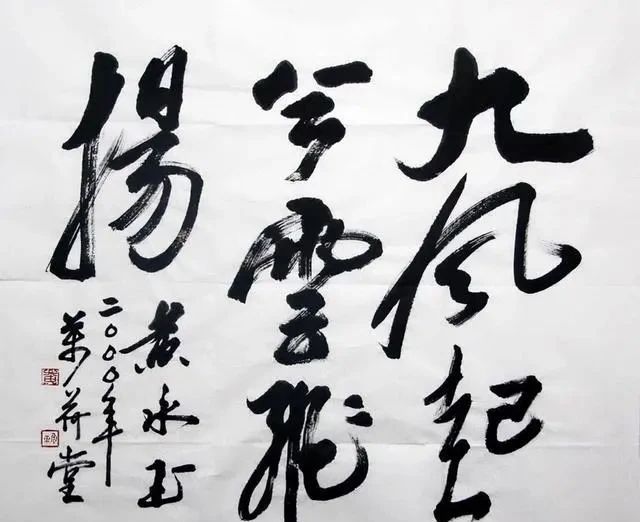 九风起
兮雲飛
揚
黄永玉
二〇〇〇年
萬荷堂